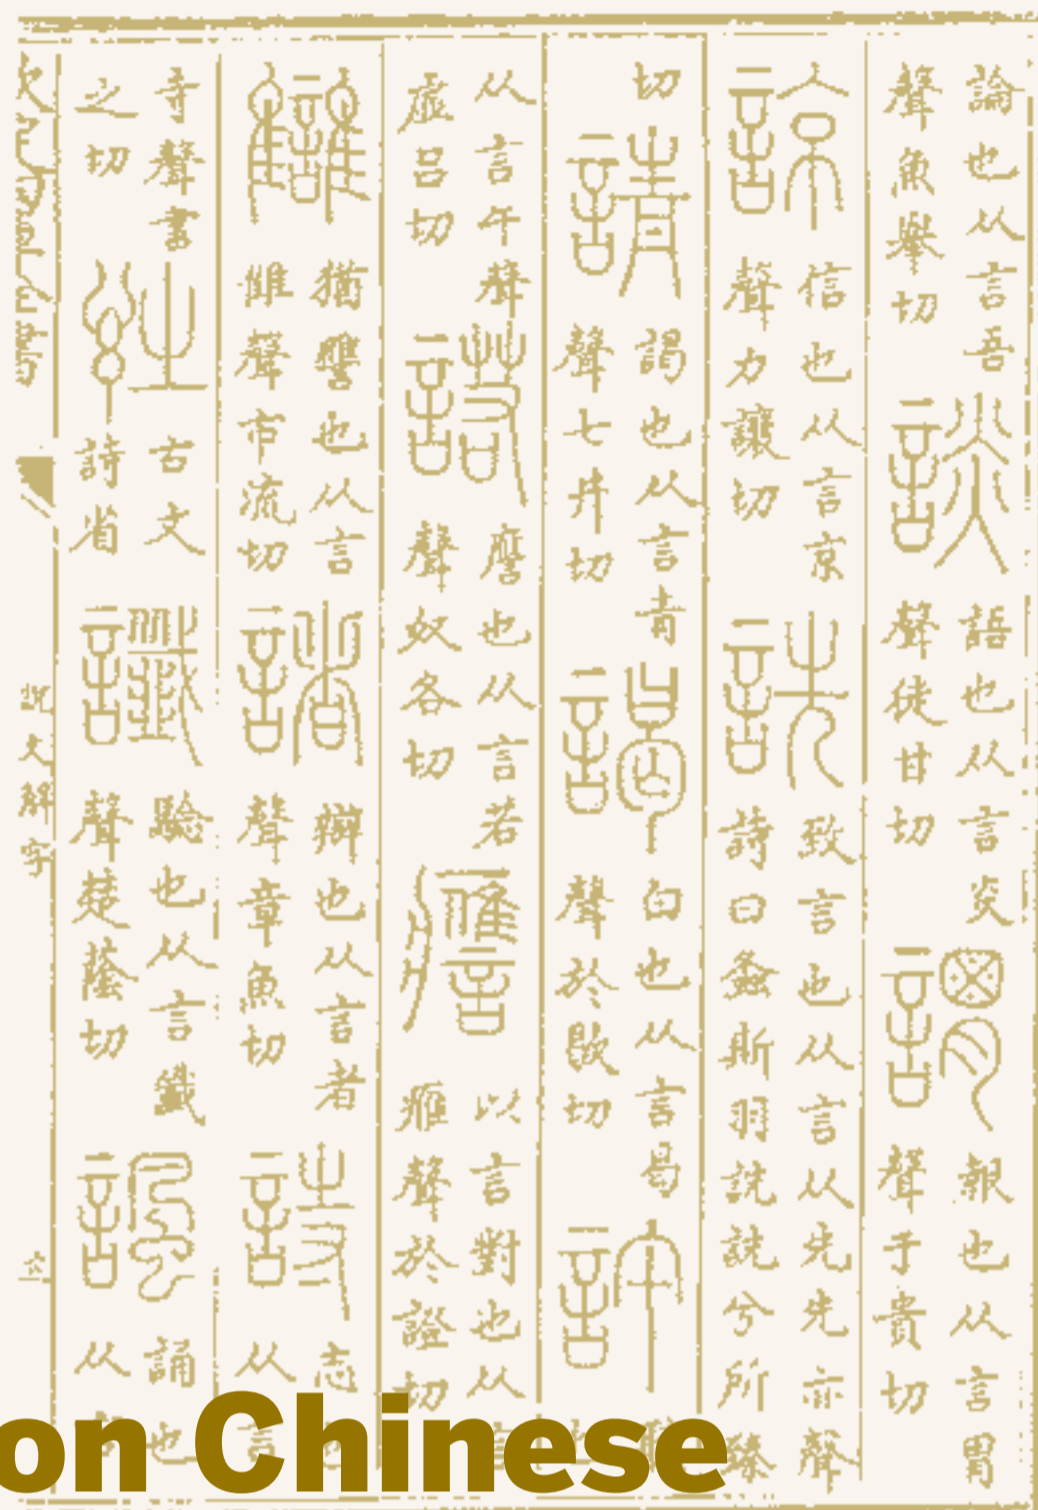 論也从言吾聲魚舉切 談 語也从言炎聲徒甘切 謂 報也从言胃聲于貴切
諒 信也从言京聲力讓切 詵 致言也从言从先先亦聲詩曰螽斯羽詵詵兮所臻
切 請 謁也从言青聲七井切 謁 白也从言曷聲於歇切 許
从言午聲虛呂切 諾 譍也从言若聲奴各切 譍 以言對也从言雁聲於證切
讎 猶譍也从言雔聲市流切 諸 辯也从言者聲章魚切 詩 志也从言
寺聲書之切 古文詩省 讖 驗也从言韱聲楚蔭切 諷 誦也从
說文解字
on Chinese